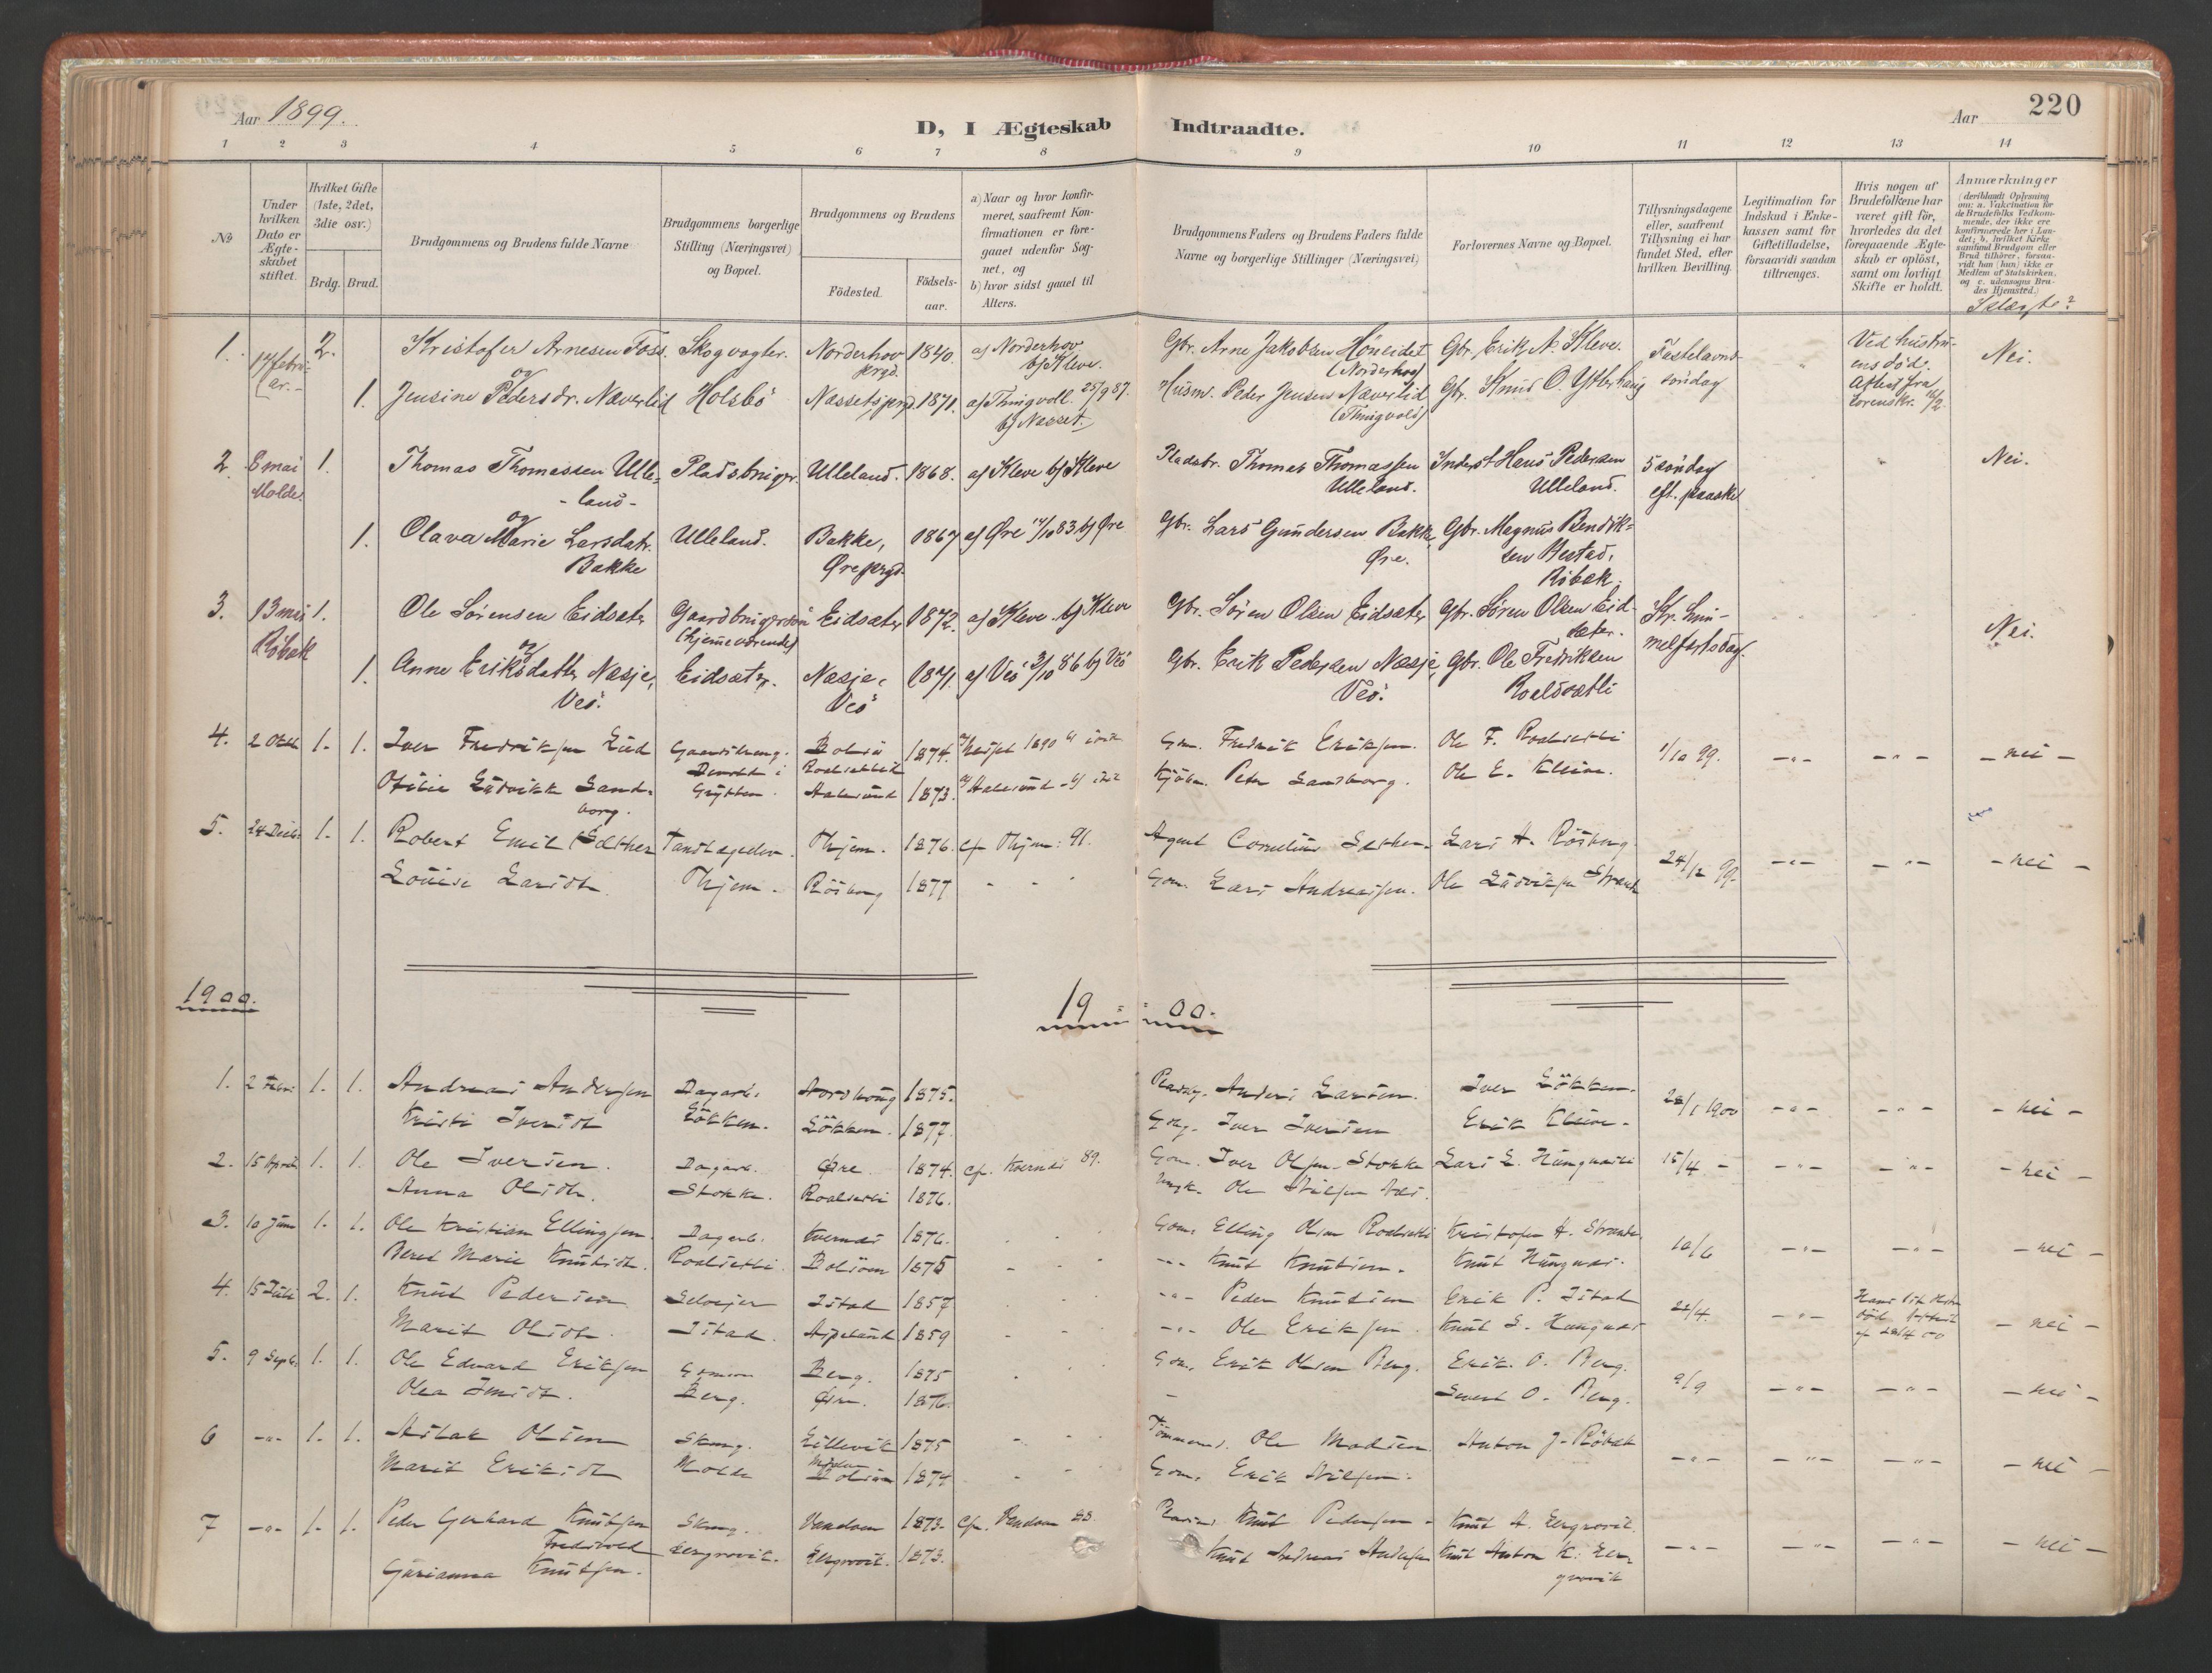 220
Aar 1899.
D, I Ægteskab Indtraadte.
Aar
1 2 3 4 5 6 7 8 9 10 11 12 13 14
№
Under hvilken Dato er Ægteskabet stiftet.
Hvilket Gifte (1ste, 2det, 3die osv.)
Brdg. Brud.
Brudgommens og Brudens fulde Navne
Brudgommens borgerlige Stilling (Næringsvei) og Bopæl.
Brudgommens og Brudens
Födested.
Födselsaar.
a) Naar og hvor konfirmeret, saafremt Konfirmationen er foregaaet udenfor Sognet, og
b) hvor sidst gaaet til Alters.
Brudgommens Faders og Brudens Faders fulde Navne og borgerlige Stillinger (Næringsvei)
Forlovernes Navne og Bopæl.
Tillysningsdagene eller, saafremt Tillysning ei har fundet Sted, efter hvilken Bevilling.
Legitimation for Indskud i Enkekassen samt for Giftetilladelse, forsaavidt saadan tiltrænges.
Hvis nogen af Brudefolkene har været gift för, hvorledes da det foregaaende Ægteskab er oplöst, samt om lovligt Skifte er holdt.
Anmærkninger
(deriblandt Oplysning om: a. Vakcination for de Brudefolks Vedkommende, der ikke ere konfirmerede her i Landet; b. hvilket Kirkesamfund Brudgom eller Brud tilhörer, forsaavidt han (hun) ikke er Medlem af Statskirken, og c. udensogns Brudes Hjemsted.)
Slægte?
1. 17 febru- 2. Kristofer Arnesen Foss. Skogvogter. Norderhov 1840. a) Norderhov Gbr. Arne Jakobsen Höneidet Gbr. Erik A. Kleve. Fastelavns- Ved hustru- Nei.
ar. og prgd. b) Kleve. (Norderhog) söndag ens död.
1. Jensine Pedersdr. Næverlid Holsbö Næssets prgd. 1871. a) Thingvoll 25/9 87. Husm. Peder Jensen Næverlid Gbr. Knud O. Ytterhaug Attest fra
b) Nesset. (Thingvold) Sorenskr. 16/2
2. 6 mai 1. Thomas Thomassen Ulle- Pladsbruger. Ulleland. 1868. a) Kleve b) Kleve Pladsbr. Thomas Thomassen Inderst Hans Pedersen 5 söndag Nei.
Molde -land- Ulleland. Ulleland. eft. paaske
og
1. Olava Marie Larsdatr. Ulleland. Bakke, 1867 a) Øre 14/10 83. b) Øre Gbr. Lars Gundersen Bakke, Gbr. Magnus Bendik-
Bakke Øre prgd. Øre. sen Hestad,
Röbæk.
3. 13 mai 1. Ole Sörensen Eidsæter Gaardbrugersön Eidsæter 1872. a) Kleve. b) Kleve Gbr. Sören Olsen Eidsæter Gbr. Sören Olsen Eid- Kr. him- Nei.
Röbæk og (hjemmeværende) sæter. melfartsdag.
1. Anne Eriksdatter Næsje, Eidsæter. Næsje, 1871. a) Veö 3/10 86 b) Veö Gbr. Erik Pedersen Næsje, Gbr. Ole Fredriksen
Veö. Veö Veö. Roaldsætli
4. 2 Oktb 1. 1. Iver Fredriksen Eid Gaardbrug. Bolsö 1874. 1890 Gm. Fredrik Eriksen. Ole F. Roalsetli 1/10 99. -"- -"- -nei-
Otilie Ludvikk Sand- Grytten. Aalesund 1873. Aalesund Kjöbm. Peter Sandborg. Ole E. Kleive.
borg.
5. 24 Decbr. 1. 1. Robert Emil Sæther Tandlægeelev. Thjem. 1876. cf Thjem: 91. Agent Cornelius Sæther. Lars A. Rösberg 24/12 99. -"- -"- -nei-
Louise Larsdtr. Thjem. Rösberg 1877 - - - Gm. Lars Andreassen. Ole Ludviksen Strande
1900. 19 00.
1. 2 Febr. 1. 1. Andreas Andersen Dagarb. Nordhaug 1875. Pladsbg. Anders Larsen. Iver Lökken. 28/1 1900 -"- -"- -nei-
Kristi Iversdtr Lökken. Lökken. 1877. Gbg. Iver Iversen Erik Kleive.
2. 15 April 1. 1. Ole Iversen. Dagarb. Øre 1874. cf. Kvernes 89. Gm. Iver Olsen Stokke Lars L. Hungnæs 15/4 - -"- -"- -nei-
Anna Olsdtr. Stokke. Roalsetli 1876. Ole Nilsen
3. 10 Juni 1. 1. Ole Kristian Ellingsen. Dagarb. Kvernes 1876. Gm. Elling Olsen Roalsetli Kristofer A. Strande 10/6 -"- -"- -nei-
Beret Marie Knutsdtr. Roalsetli. Bolsöen 1875 -"- Knut Knutsen. Knut Hungnæs.
4. 15 Juli 2. 1. Knut Pedersen Selveier Istad 1857. -"- Peder Knutsen Erik P. Istad 22/4. -"- -nei-
Marit Olsdtr. Istad. Aspelund 1859 -"- Ole Eriksen. Knut L. Hungnæs cf 28/4 00
5. 9 Septb. 1. 1. Ole Edvard Eriksen Gmsön Berg. 1875 Gm. Erik Olsen Berg. Erik O. Berg. 9/9 -"- -"- -nei-
Olea Jensdtr. Berg. Øre. 1876. - Severt O. Berg.
6 -"- 1. 1. Aslak Olsen Skomg. Lillevik 1875 Tömmerm. Ole Madsen Anton J. Röbæk -"- -"- -"- -nei-
Marit Eriksdtr Molde Bolsöen 1874 Gm. Erik Nilsen.
7 -"- 1. 1. Peder Gerhard Knutsen Skomg. Vendom 1873. cf. Vendom 88. Knut Pedersen Knut A. Elgsnovik. -"- -"- -"- -nei-
Fredsvold
Gurianna Knutsen. 1873. Knut Andreas Andersen Knut Anton K.